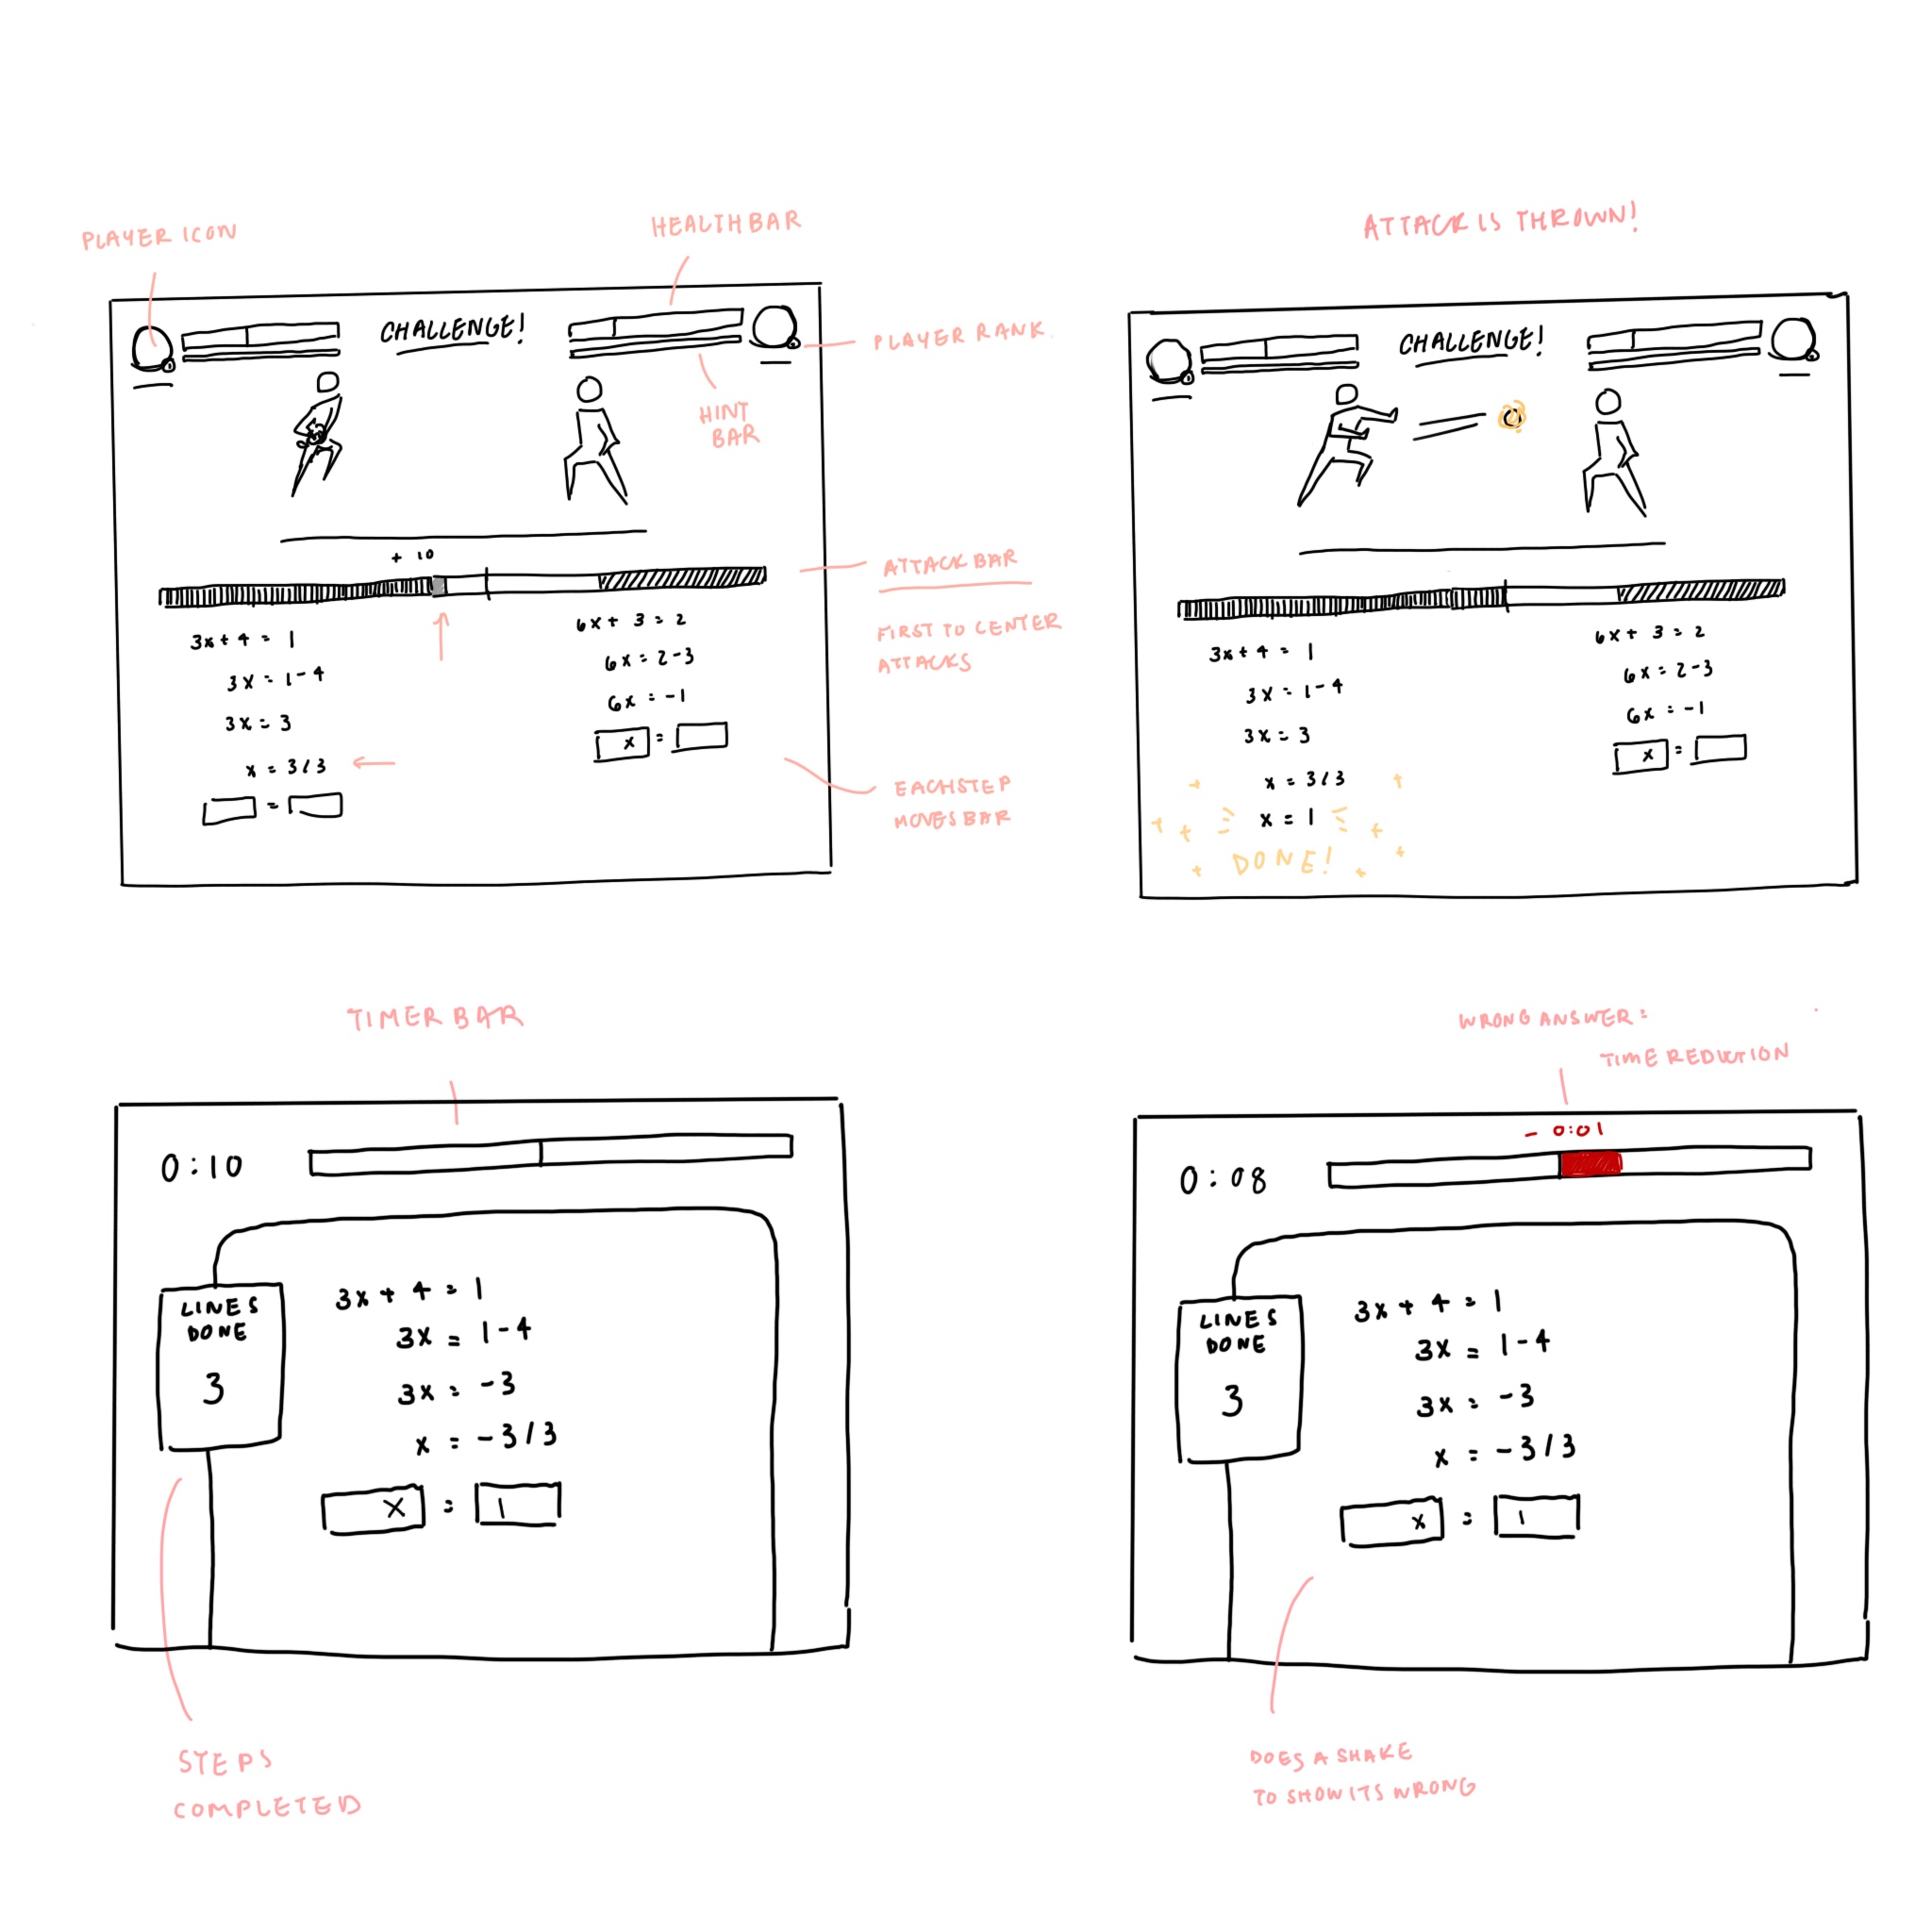 PLAYER ICON
HEALTH BAR
CHALLENGE!
PLAYER RANK
HINT
BAR
+ 10
ATTACK BAR
FIRST TO CENTER
ATTACKS
3x + 4 = 1
3x = 1 - 4
3x = 3
x = 3/3
6x + 3 = 2
6x = 2 - 3
6x = -1
x =
=
EACH STEP
MOVES BAR
ATTACK IS THROWN!
CHALLENGE!
3x + 4 = 1
3x = 1 - 4
3x = 3
x = 3/3
x = 1
DONE!
6x + 3 = 2
6x = 2 - 3
6x = -1
x =
TIMER BAR
0:10
LINES
DONE
3
3x + 4 = 1
3x = 1 - 4
3x = -3
x = -3/3
x = 1
STEPS
COMPLETED
WRONG ANSWER:
TIME REDUCTION
- 0:01
0:08
LINES
DONE
3
3x + 4 = 1
3x = 1 - 4
3x = -3
x = -3/3
x = 1
DOES A SHAKE
TO SHOW ITS WRONG